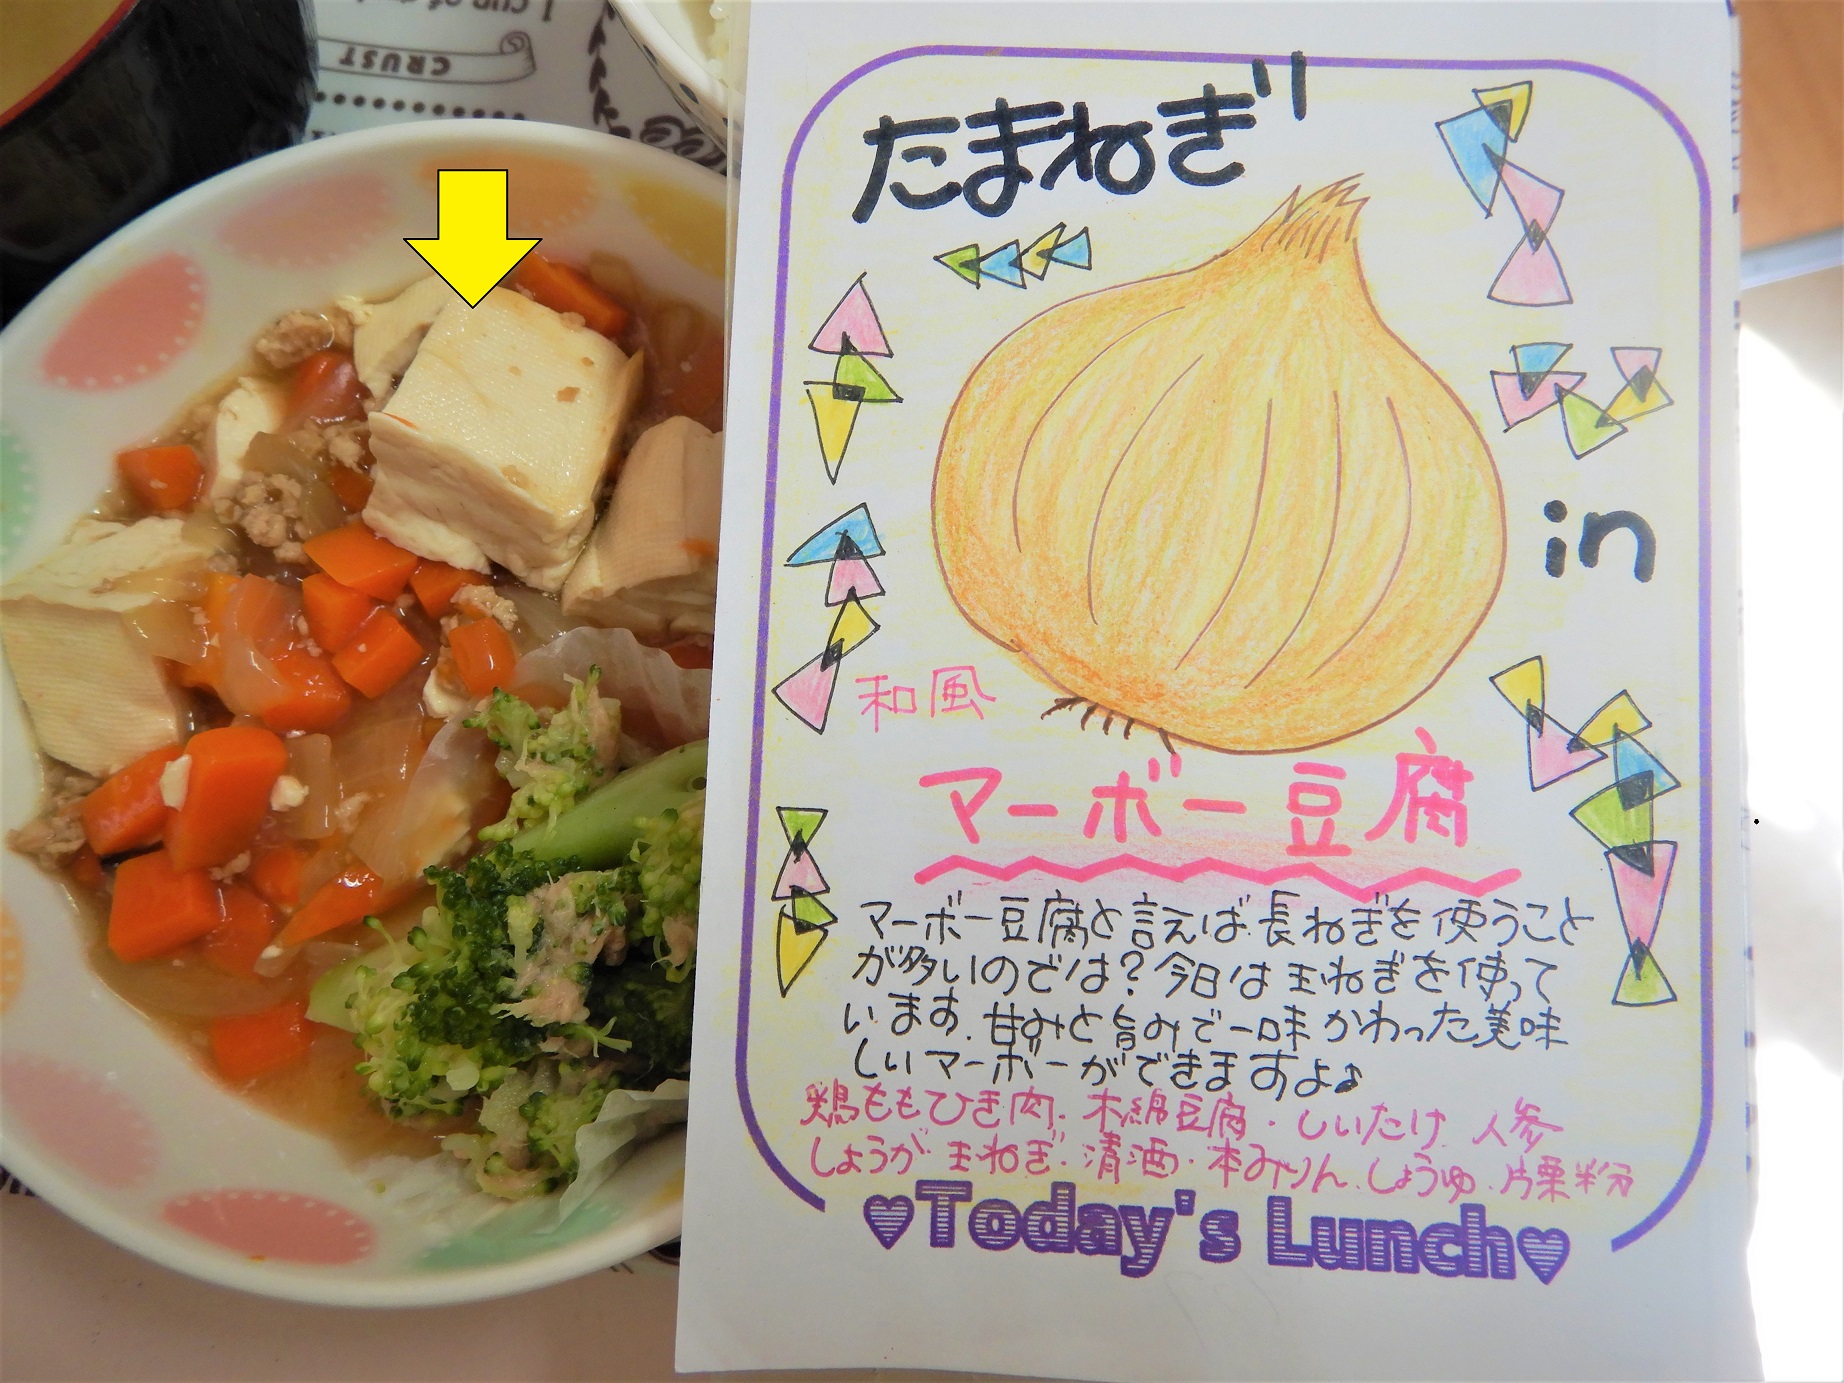 1 cup of
CRUST
たまねぎ
in
和風
マーボー豆腐
マーボー豆腐と言えば長ねぎを使うこと
が多いのでは?今日は玉ねぎを使って
います。甘みと旨みで一味かわった美味
しいマーボーができますよ♪
鶏ももひき肉・木綿豆腐・しいたけ・人参
しょうが・玉ねぎ・清酒・本みりん・しょうゆ・片栗粉
♥Today's Lunch♥